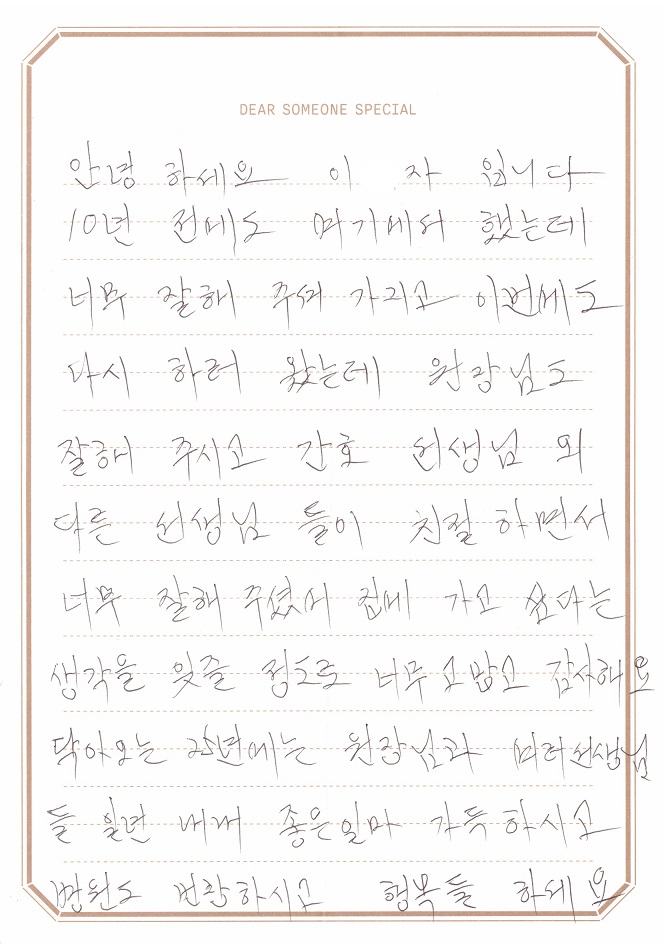 DEAR SOMEONE SPECIAL
안녕 하세요 이 자 입니다
10년 전에도 여기에서 했는데
너무 잘해 주셔 가지고 이번에도
다시 하려 왔는데 원장님도
잘해 주시고 간호 선생님 외
다른 선생님 들이 친절 하면서
너무 잘해 주셨서 집에 가고 싶다는
생각을 잊즐 정도로 너무 고맙고 감사해요
닥아오는 25년에는 원장님과 여러선생님
들 일년 내내 좋은일마 가득 하시고
병원도 번창하시고 행복들 하세요